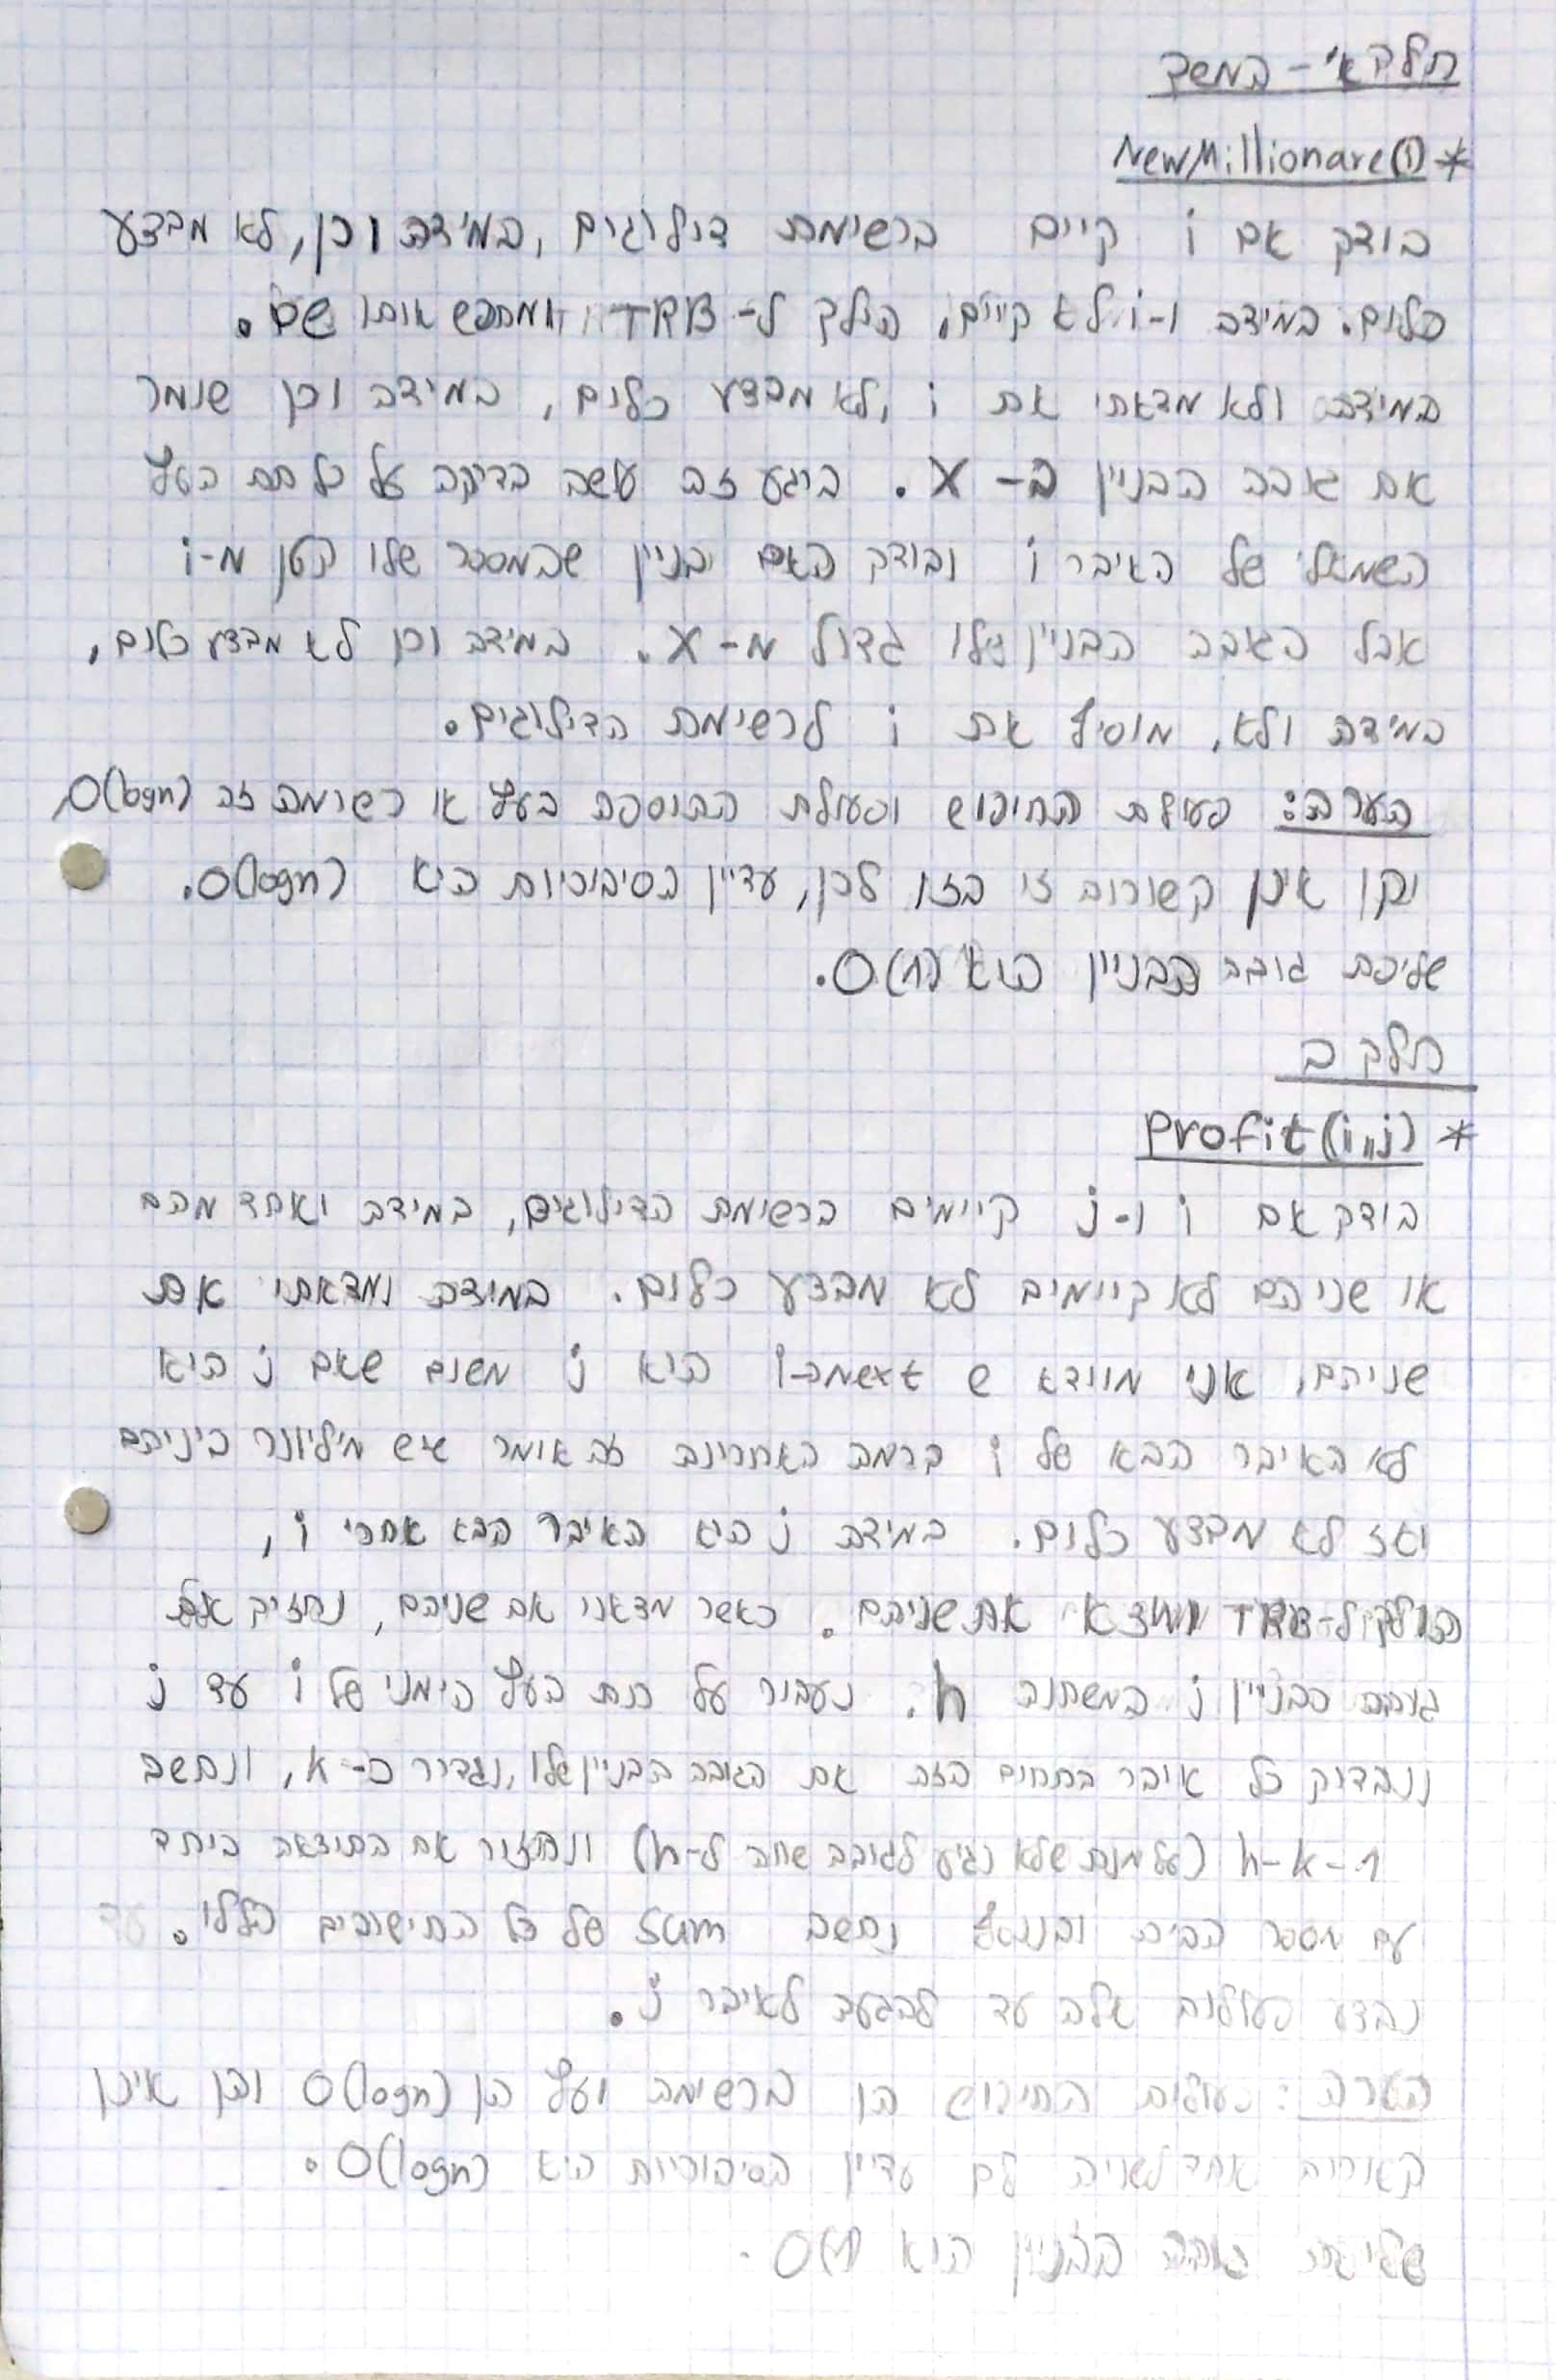 חלק א' - המשך
* NewMillionare(i)
בודק אם i קיים ברשימת דילוגים, במידה וכן, לא מבצע
כלום. במידה ו-i לא קיים, הולך ל-TRB ומחפש אותו שם.
במידה ולא מצאתי את i, לא מבצע כלום, במידה וכן שומר
את גובה הבניין ב-X. ברגע זה עושה בדיקה על כל תת העץ
השמאלי של האיבר i ובודק האם בניין שהמספר שלו קטן מ-i
אבל הגובה הבניין שלו גדול מ-X. במידה וכן לא מבצע כלום,
במידה ולא, מוסיף את i לרשימת הדילוגים.
הערה: פעולת החיפוש ופעולת ההוספה בעץ או רשימה זה O(logn)
והן אינן קשורות זו בזו לכן, עדיין הסיבוכיות היא O(logn).
שליפת גובה הבניין הוא O(1).
חלק ב
* Profit(i,j)
בודק אם i ו-j קיימים ברשימת הדילוגים, במידה ואחד מהם
או שניהם לא קיימים לא מבצע כלום. במידה ומצאתי את
שניהם, אני מוודא ש next מה-i היא j משום שאם j היא
לא האיבר הבא של i ברמה האחרונה זה אומר שיש מיליונר ביניהם
ואז לא מבצע כלום. במידה j היא האיבר הבא אחרי i,
הולך ל-TRB ומוצא את שניהם. כאשר מצאנו את שניהם, נחזיק את
גובה הבניין j במשתנה h. נעבור על תת העץ הימני של i עד j
ונבדוק כל איבר בתחום הזה את הגובה הבניין שלו, נגדיר כ-k, ונחשב
h-k-1 (על מנת שלא נגיע לגובה שווה ל-h) ונחזור את התוצאה ביחד
עם מספר הבית ובנוסף נחשב sum של כל החישובים הללו.
נבצע פעולות אלה עד להגעה לאיבר j.
הערה: פעולות החיפוש הן ברשימה ועץ הן O(logn) והן אינן
קשורות אחד לשנייה לכן עדיין הסיבוכיות היא O(logn).
שליפת גובה הבניין הוא O(1).